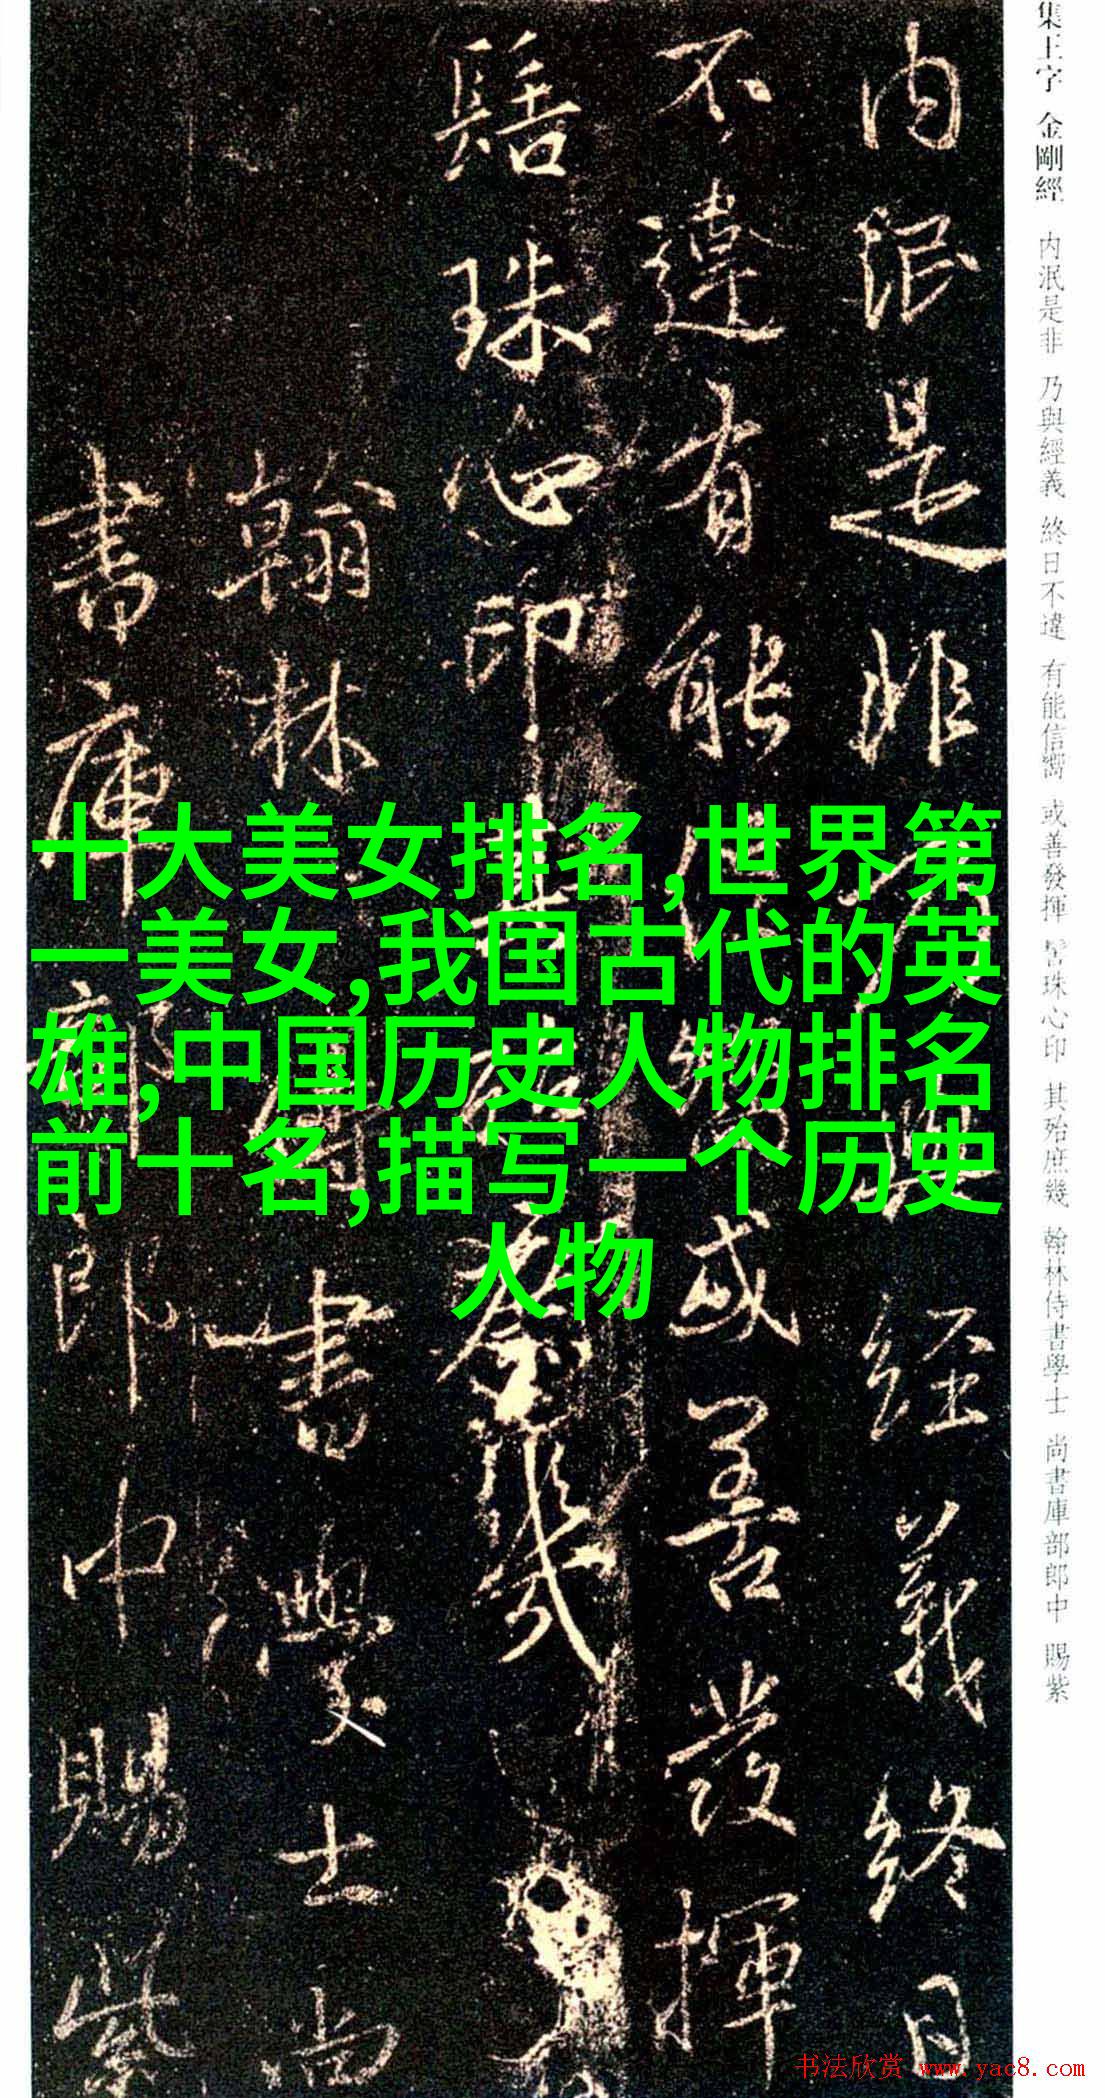 集王字 金剛經 内泯是非 乃與經義 終日不違 有能信嚮 或善發揮 髻珠心印 其殆庶幾 翰林侍書學士 尚書庫部郎中 賜紫
内泯是非乃與經義終日
不違有能信嚮或善發揮
髻珠心印其殆庶幾
翰林侍書學士尚
書庫部郎中賜紫
十大美女排名,世界第
一美女,我国古代的英
雄,中国历史人物排名
前十名,描写一个历史
人物
书法欣赏 www.yac8.com